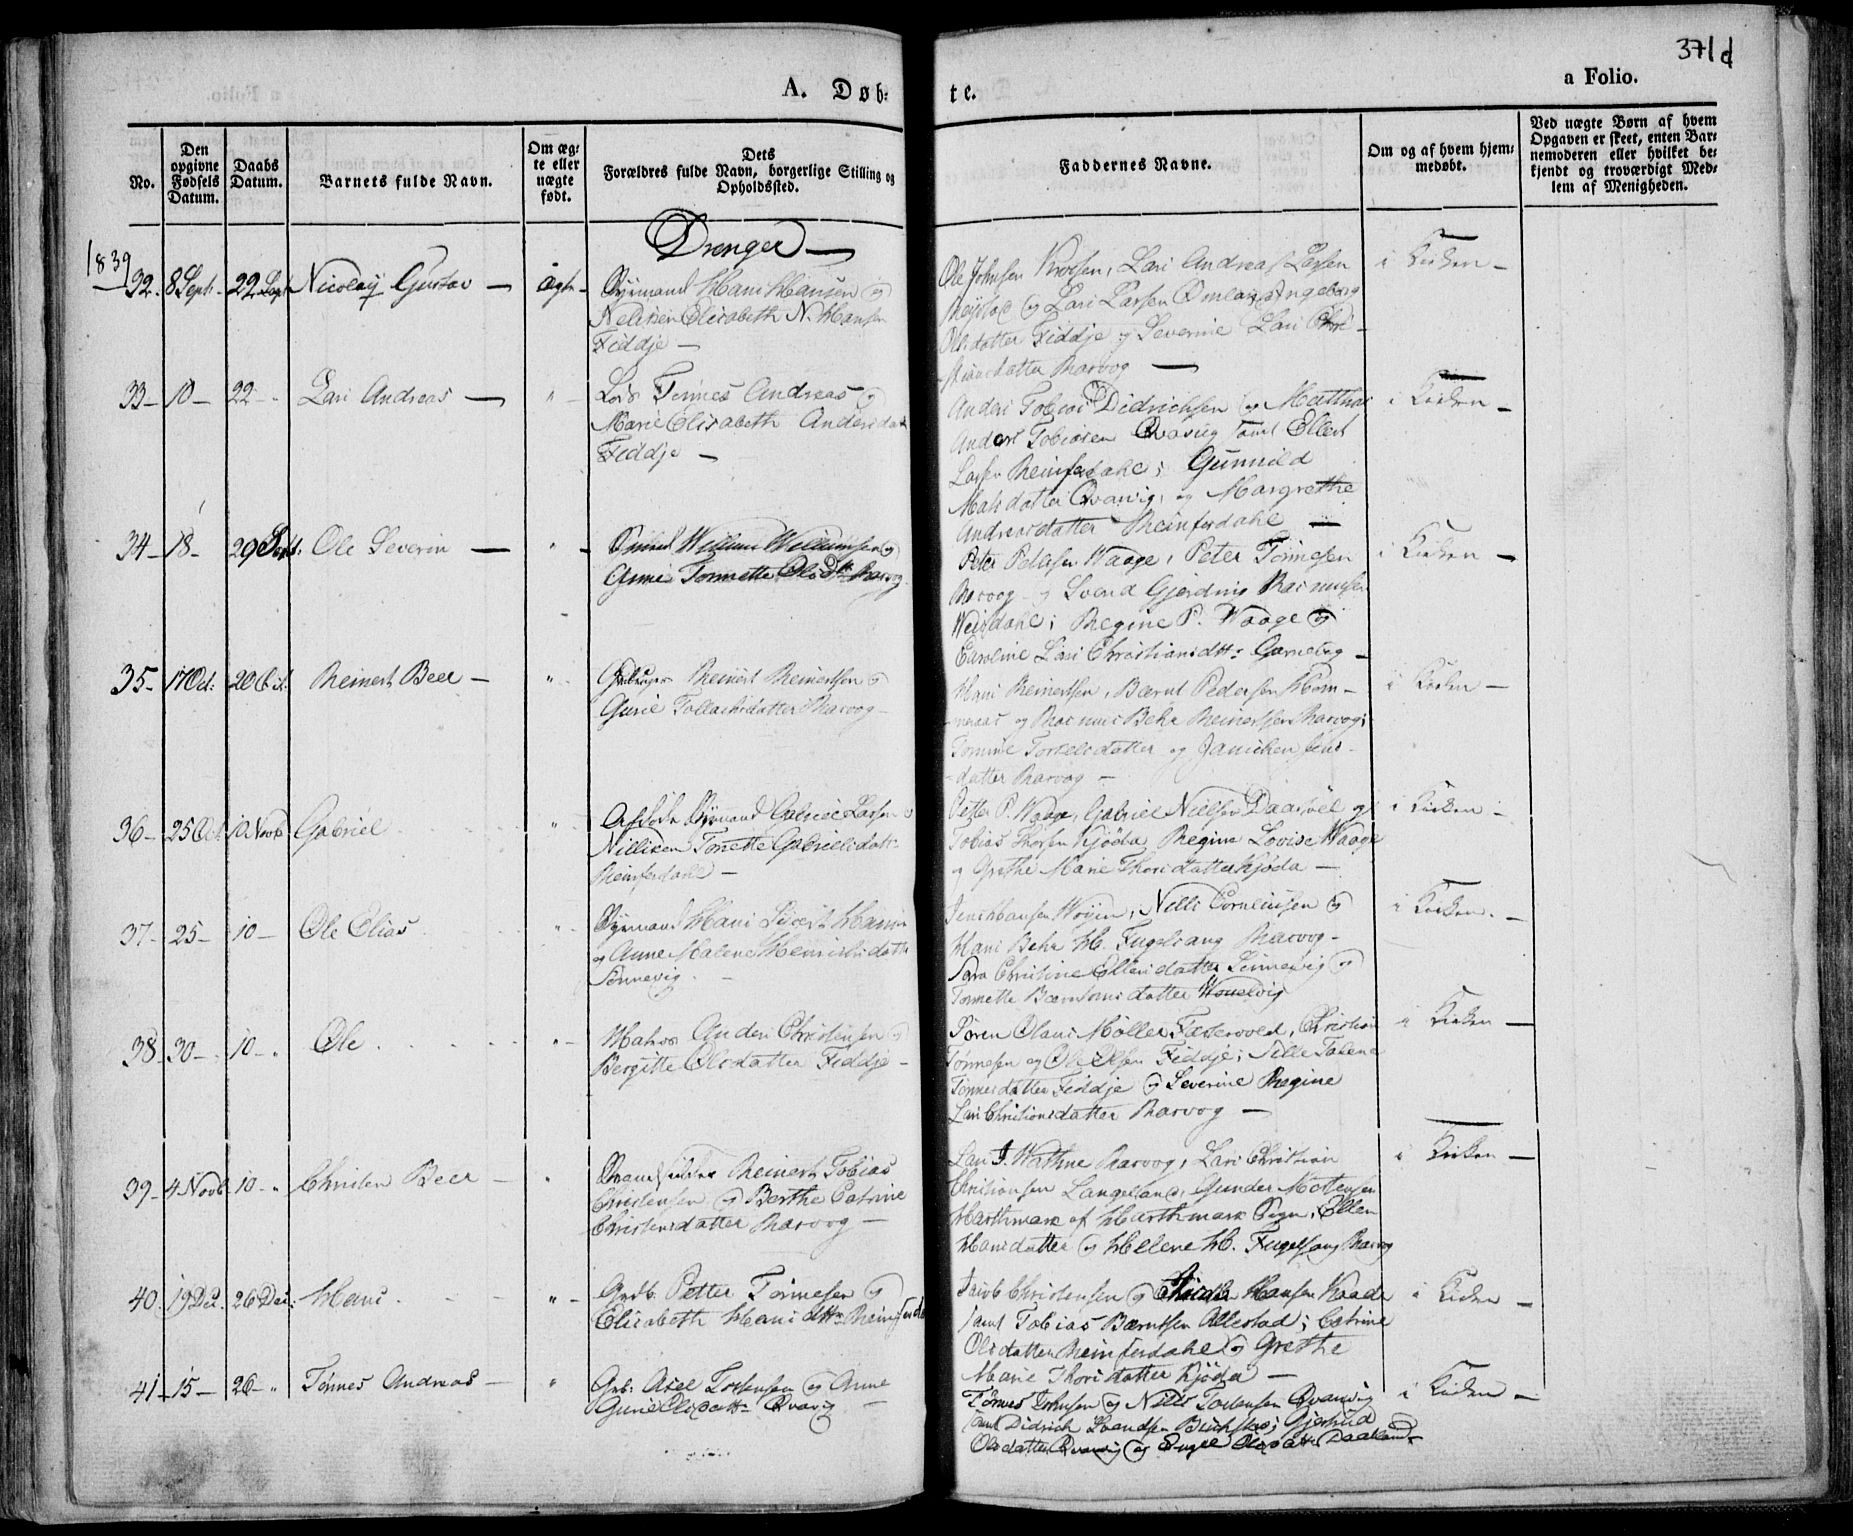 371d
A. Døb-
te.
a Folio.
No.
Den opgivne Fødsels Datum.
Daabs Datum.
Barnets fulde Navn.
Om æg- te eller uægte født.
Dets Forældres fulde Navn, borgerlige Stilling og Opholdssted.
Faddernes Navne.
Om og af hvem hjem- medøbt.
Ved uægte Børn af hvem Opgaven er skeet, enten Bar- nemoderen eller hvilket be- kjendt og troværdigt Med- lem af Menigheden.
Drenger —
1839
32. 8 Sept. 22 Sept Nicolaij Gustav — ægte —
Styrmand Hans Hansen og
Elisabeth N. Hansen
Fiddje —
Ole Johnsen Lars Andreas Larsen
og Lars Larsen Ingeborg
Olsdatter Fiddje og Severine Lars Chri-
stiansdatter Rarvog —
i Kirken —
33 — 10 — 22 — Lars Andreas — " —
Lods Tønnes Andreas og
Marie Elisabeth Andersdatt
Fiddje —
Anders Tobias Didrichsen og Matthias
Anders Tobiasen Qvavig samt Ellert
Larsen Reinfersdahl; Gunnild
Matsdatter Qvavig, og Margrethe
Andreasdatter Reinfersdahl —
i Kirken —
34 — 18 — 29 Sept. Ole Severin — " —
Willum Willumsen og
Anne Tonnette Olsdtt Rarvog.
Peter Pedersen Waage, Peter Tønnesen
Rarvog og Svend Gjerding Rasmussen
Weisdahl; Regine P. Waage og
Caroline Lars Christiansdtt:
i Kirken —
35 — 17 Oct. 20 Oct. Reinert Beer — " —
Reinert Reinertsen og
Gurie Tollachsdatter Rarvog —
Hans Reinertsen, Bærnt Pedersen Hom-
og Rasmus Behr Reinertsen Rarvog;
Tomine Torkelsdatter og Janichen Jens-
datter Rarvog —
i Kirken —
36 — 25 Oct. 10 Novb Gabriel " —
Afdøde Styrmand Gabriel Larsen
Nilliken Tonette Gabrielsdatt:
Reinfersdahl —
Petter P. Waage, Gabriel Nielsen og
Tobias Thorsen Kjøda Regine Lovise Waage
og Grethe Marie Thorsdatter Kjøda —
i Kirken —
37 — 25 — 10 — Ole Elias " —
Styrmand Hans Sivert Hansen
og Anne Malene Henrichsdatt
Sønnevig. —
Jens Hansen Nills Corneliusen og
Hans Behr H. Fugelsang Rarvog —
Sara Christine Ellersdatter Sønnevig og
Tonnette datter
i Kirken. —
38 — 30 — 10 — " Ole. " —
Matros Anders Christensen og
Bergitte Olsdatter Fiddje —
Søren Olaus Møller Christian
Tønnesen og Ole Olsen Fiddje; Sille Talene
Tønnesdatter Fiddje og Severine Regine
Lars Christiansdatter Rarvog —
i Kirken —
39 — 4 Novb 10 — " Christen Beer — "
Reinert Tobias
Christensen og Berthe Catrine
Christensdatter Rarvog —
Lars J. Wathne Rarvog, Lars Christian
Christiansen Langeland, Gunder Mortensen
Harthmark af Harthmark Sogn; Ellen
Hansdatter og Helene H. Fugelsang Rarvog
i Kirken —
40. 19 Dec. 26 Dec: Hans. " —
Grdb. Petter Tønnesen og
Elisabeth Hansdttr Reinfersdal
Jacob Christensen og Hansen Kaade
samt Tobias Bærntsen Ollestad; Catrine
Olsdatter Reinfersdahl og Grethe
Marie Thorsdatter Kjøda —
i Kirken —
41 — 15 — 26 — " Tønnes Andreas — "
Grb: Axel Torstensen og Anne
Gurie Olsdatt: Qvavig —
Tønnes Johnsen og Nills Torstensen Qvavig
samt Didrich Svendsen Gjertrud
Olsdatter Qvavig og Engel Olsdatter
i Kirken —